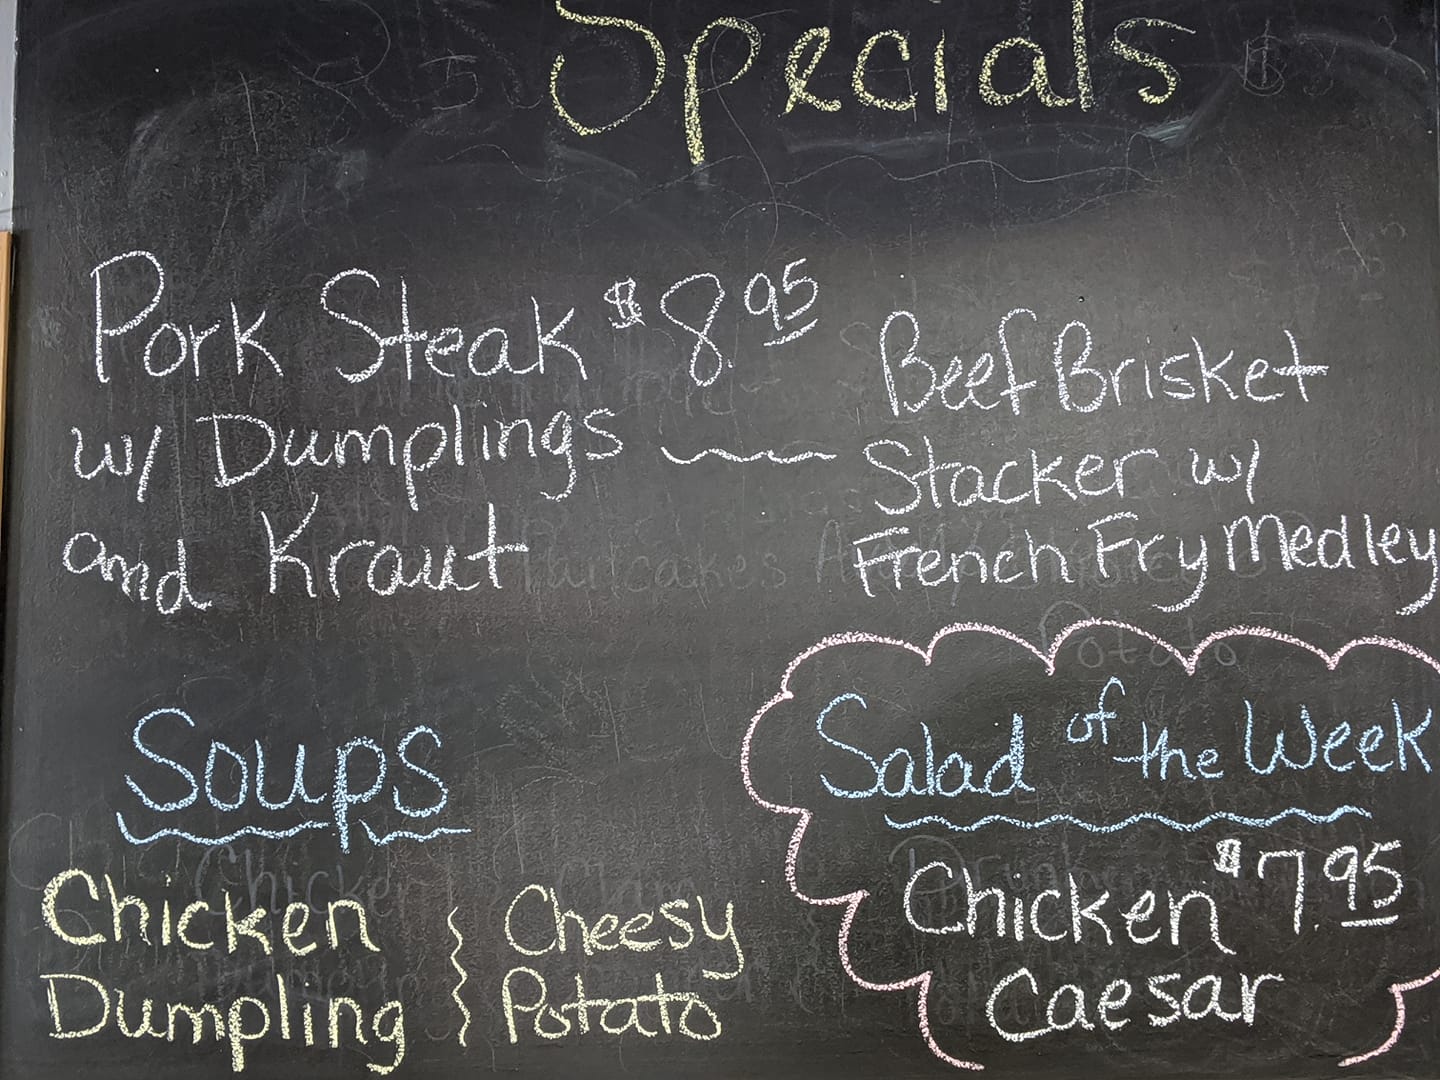 Specials
Pork Steak $8.95
w/ Dumplings
and Kraut
Beef Brisket
Stacker w/
French Fry Medley
Soups
Chicken
Dumpling
Cheesy
Potato
Salad of the Week
Chicken $7.95
Caesar